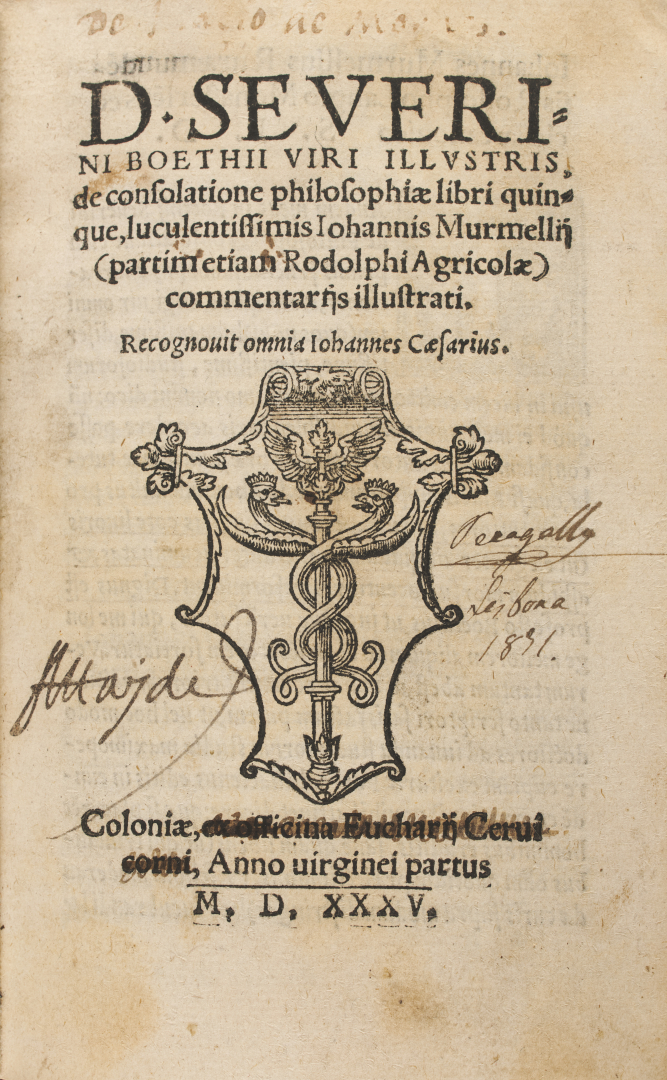 De
D. SEVERI-
NI BOETHII VIRI ILLVSTRIS,
de conſolatione philoſophiæ libri quin-
que, luculentiſſimis Iohannis Murmellij
(partim etiam Rodolphi Agricolæ)
commentarijs illuſtrati.
Recognouit omnia Iohannes Cæſarius.
Lisbona
1831.
Coloniæ, ex officina Eucharij Cerui
corni, Anno uirginei partus
M. D. XXXV.